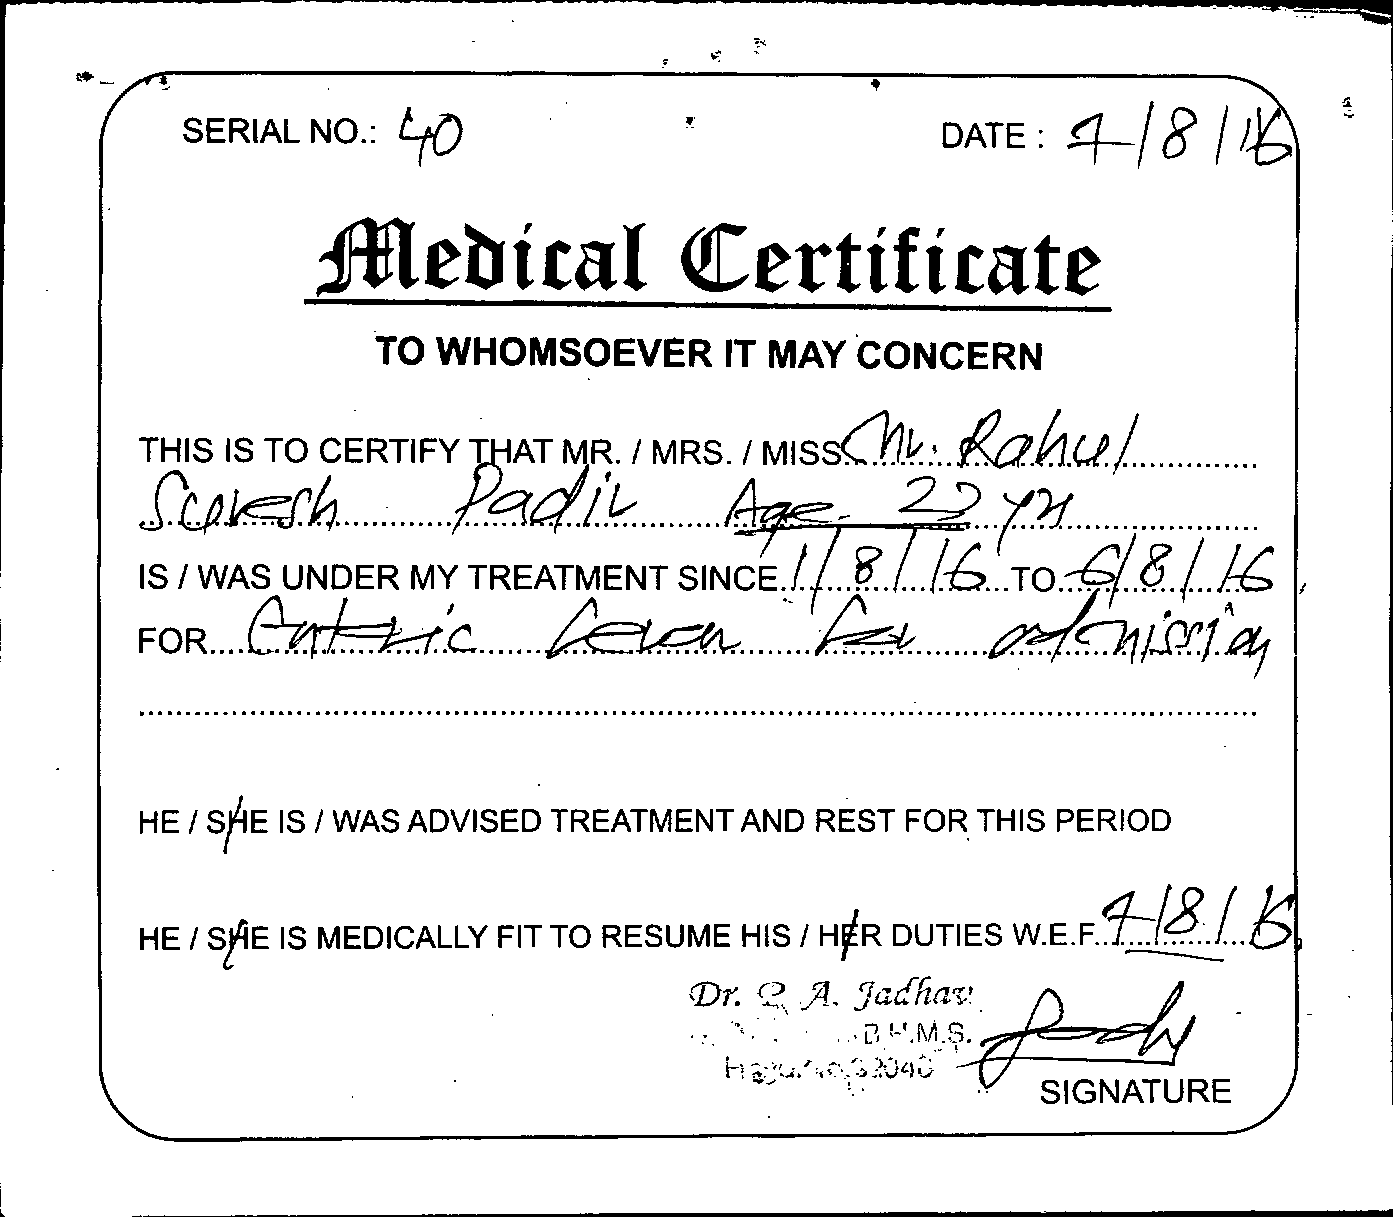 SERIAL NO.: 40 DATE : 4/8/16
Medical Certificate
TO WHOMSOEVER IT MAY CONCERN
THIS IS TO CERTIFY THAT MR. / MRS. / MISS Mr. Rahul
Suresh Age. yr
IS / WAS UNDER MY TREATMENT SINCE 1/8/16 TO 6/8/16
FOR Enteric fever for admission
HE / SHE IS / WAS ADVISED TREATMENT AND REST FOR THIS PERIOD
HE / SHE IS MEDICALLY FIT TO RESUME HIS / HER DUTIES W.E.F. 4/8/16
Dr. A. Jadhav
B.H.M.S.
SIGNATURE